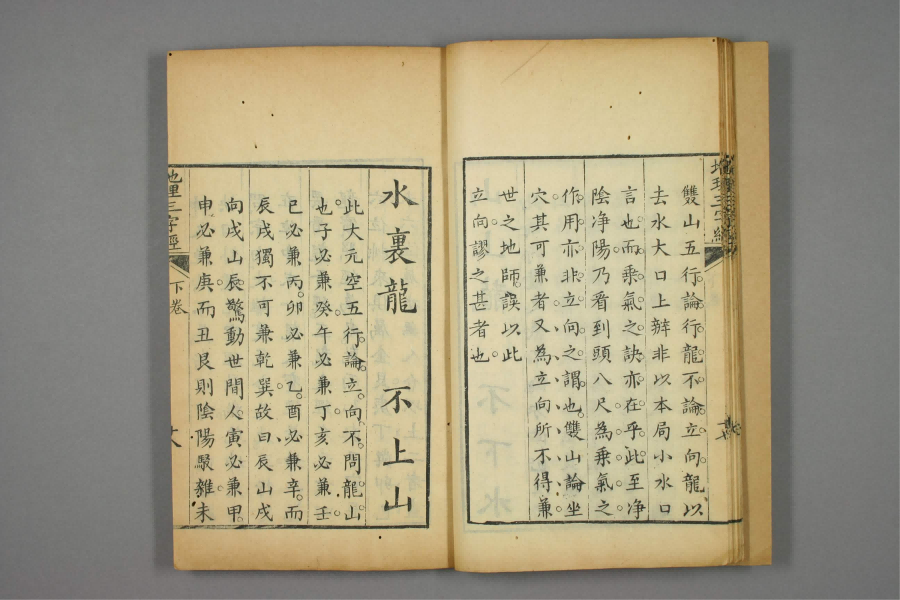 雙山五行論行龍不論立向龍以
去水大口上辨非以本局小水口
言也而乘氣之訣亦在乎此至净
陰净陽乃看到頭八尺為乘氣之
作用亦非立向之謂也雙山論坐
穴其可兼者又為立向所不得兼
世之地師誤以此
立向謬之甚者也
水裏龍 不上山
此大元空五行論立向不問龍山
也子必兼癸午必兼丁亥必兼壬
巳必兼丙卯必兼乙酉必兼辛而
辰戌獨不可兼乾巽故曰辰山戌
向戌山辰驚動世間人寅必兼甲
申必兼庚而丑艮則陰陽駁雜未
地理三字經
下卷